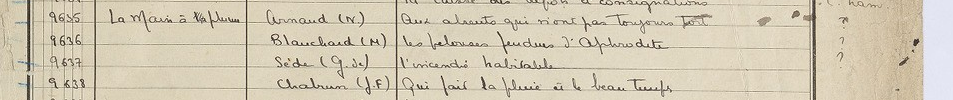 la caisse des dépôts & consignations
9635 La Main à plume Arnaud (N) Aux absents qui n'ont pas toujours tort ?
9636 Blanchard (M) les pelouses fendues d'Aphrodite ?
9637 Sède (G. de) l'incendie habitable ?
9638 Chabrun (J.F) Qui fait la pluie et le beau temps